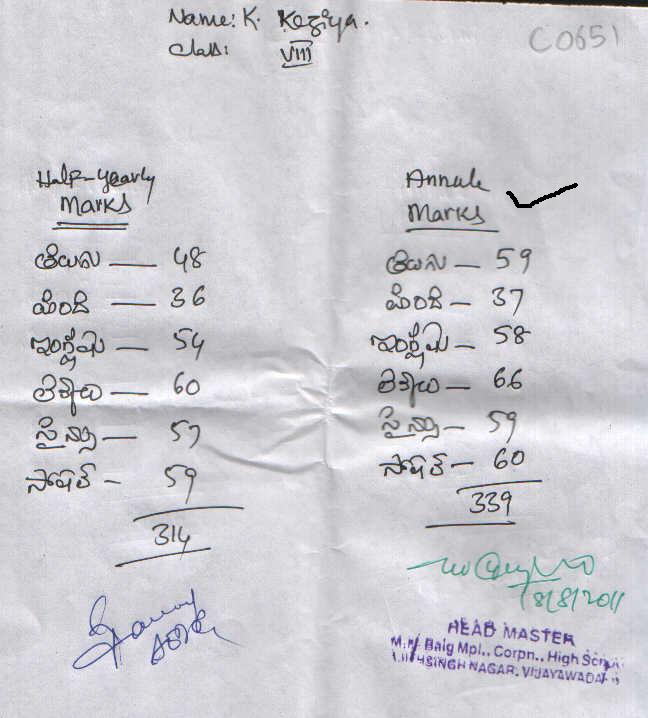 Name: K. Keziya.
Class: VIII
C0651
Half-yearly
Marks
తెలుగు — 48
హిందీ — 36
ఇంగ్లీషు — 54
లెక్కలు — 60
సైన్సు — 57
సోషల్ - 59
314
Annule
Marks
తెలుగు — 59
హిందీ — 37
ఇంగ్లీషు — 58
లెక్కలు — 66
సైన్సు — 59
సోషల్ - 60
339
18/8/2011
HEAD MASTER
Baig Mpl., Corpn., High
SINGH NAGAR, VIJAYAWADA